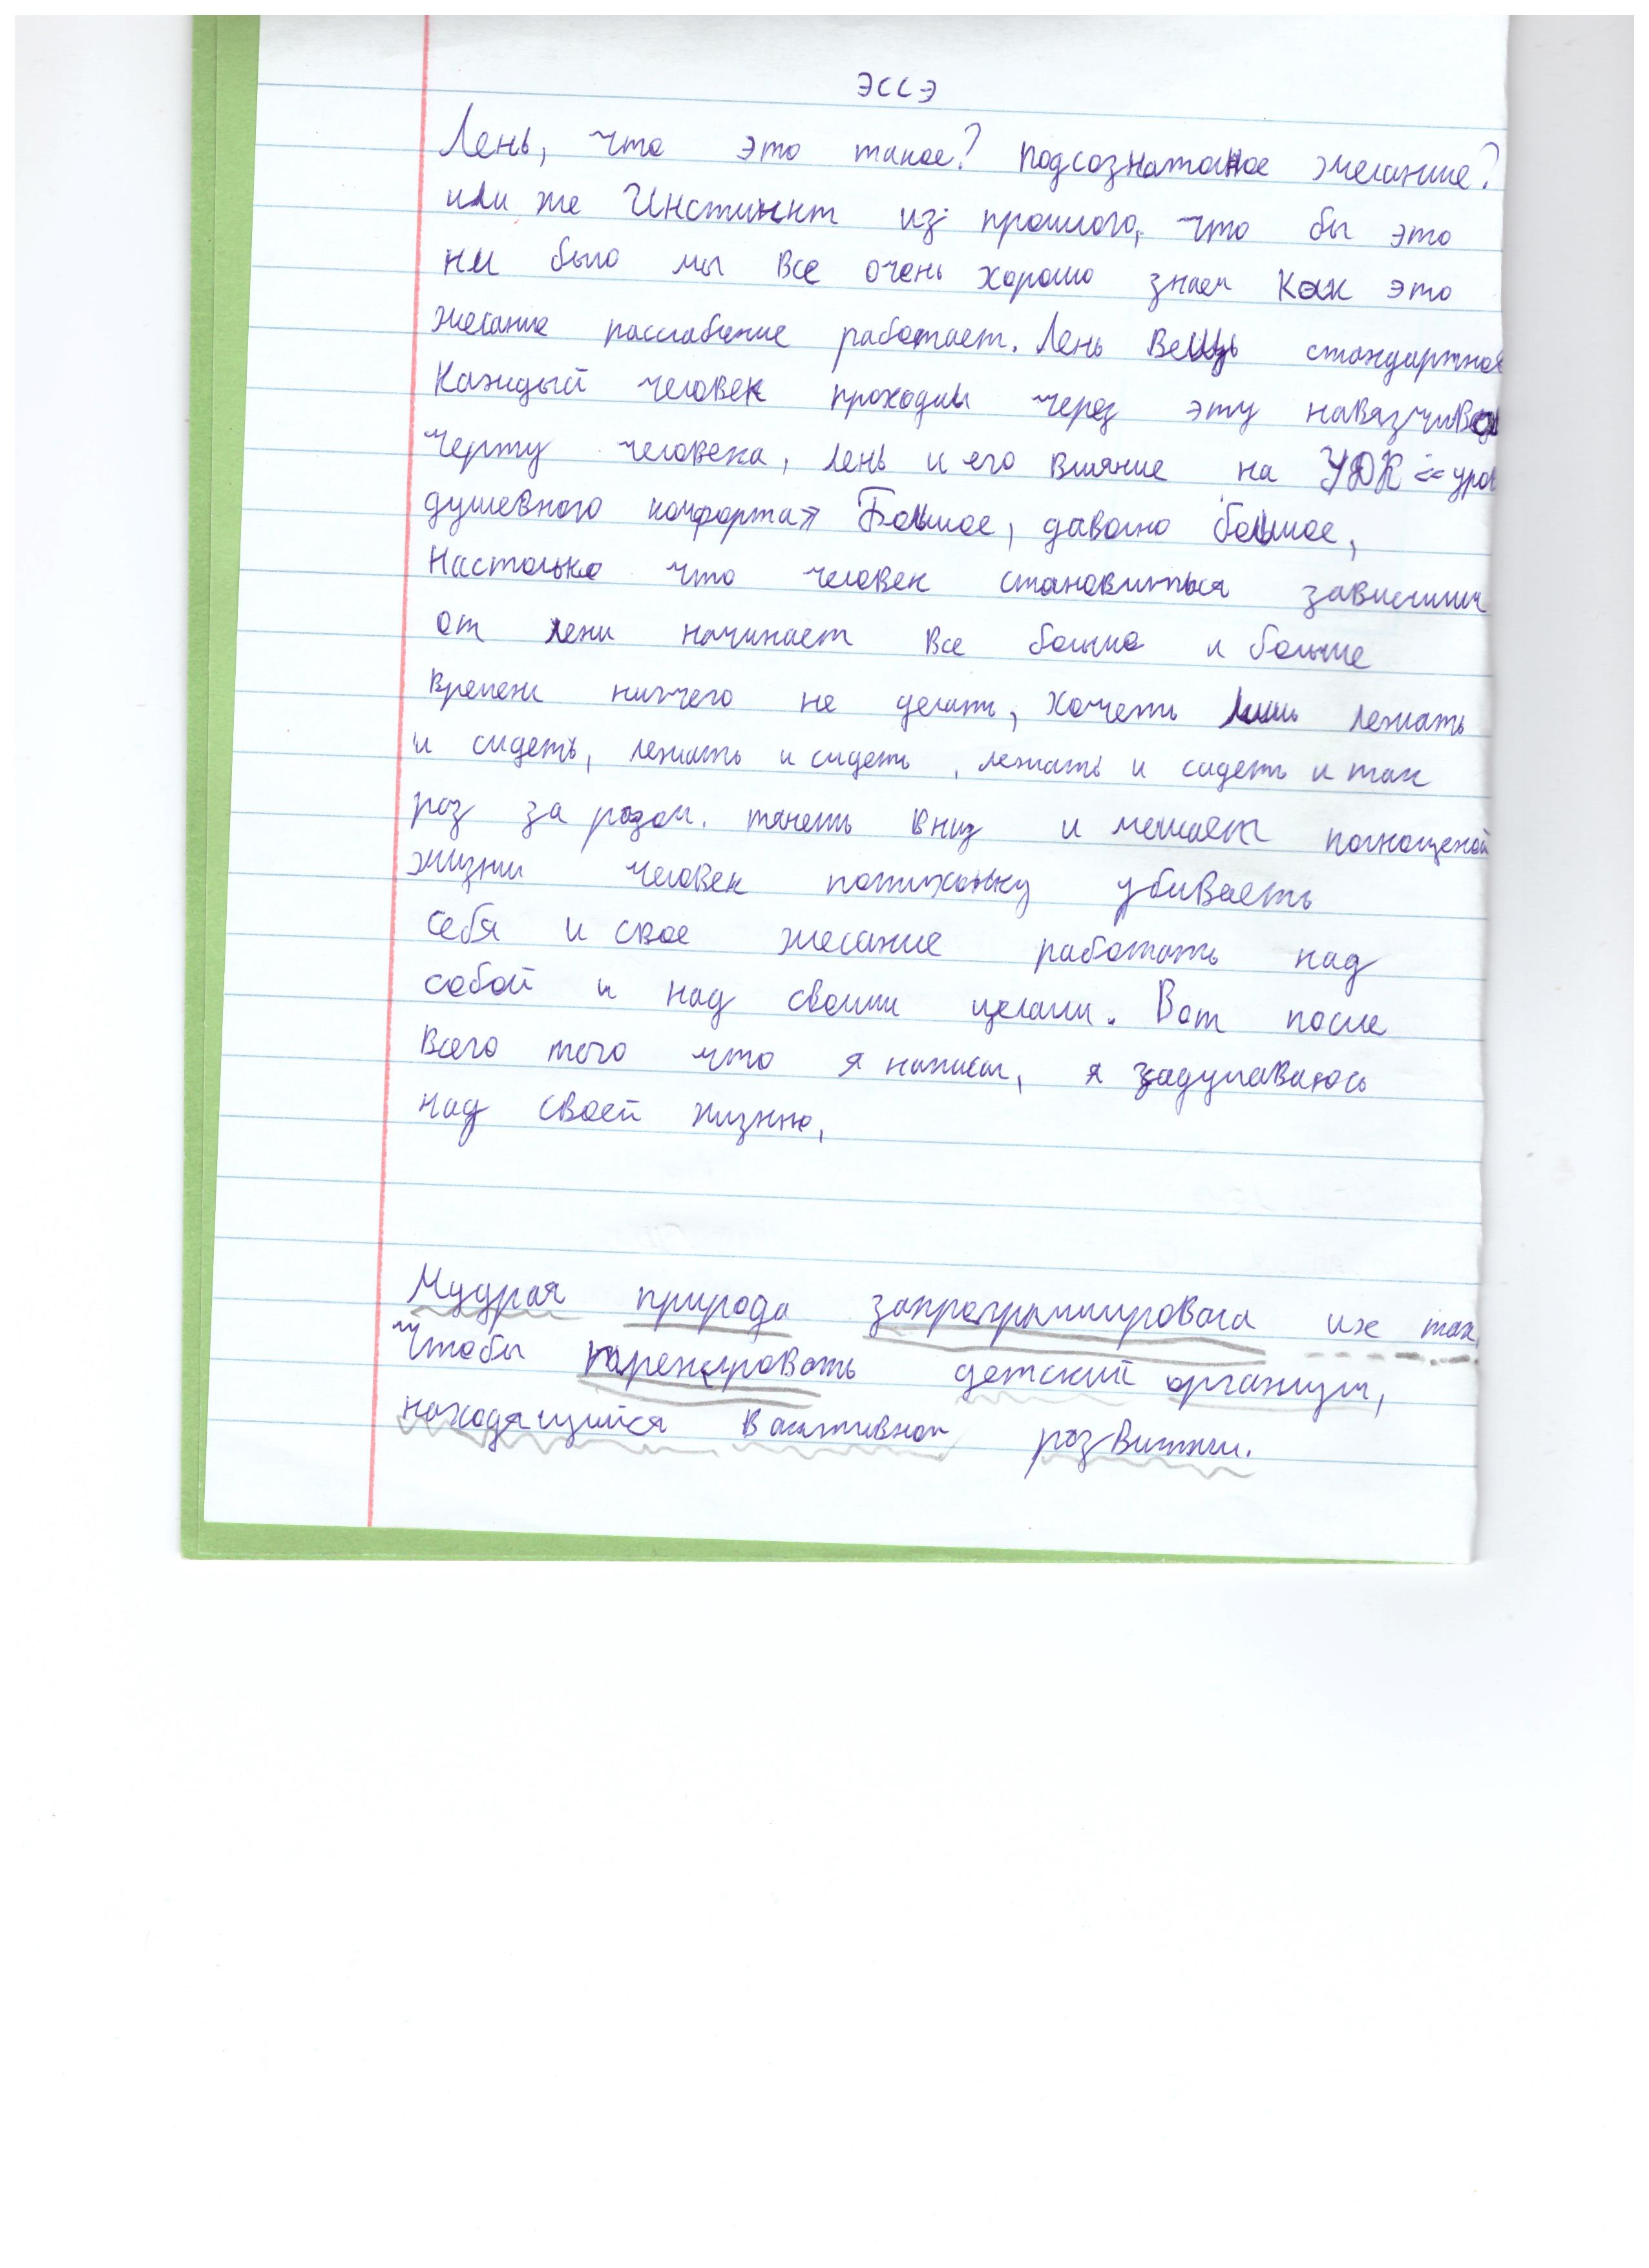 ЭССЭ
Лень, что это такое? подсознатальное желание?
или же Инстинкт из прошлого, что бы это
ни было мы все очень хорошо знаем как это
желание расслабение работает. Лень вещь стандартная
Каждый человек проходил через эту навязчивою
черту человека, лень и его влияние на УДК «уров
душевного комфорта» Большое, давольно большое,
Настолько что человек становиться зависимым
от лени начинает все больше и больше
времени ничего не делать, хочеть лишь лежать
и сидеть, лежать и сидеть, лежать и сидеть и так
роз за розом. тянеть вниз и мешает полноценой
жизни человек потихоньку убиваеть
себя и свое желание работать над
собой и над своими целами. Вот после
всего того что я написал, я задумаваюсь
над своей жизнью.
Мудрая природа запрограммировала их так,
Чтобы тренировать детский организм,
находящийся в активном розвитии.